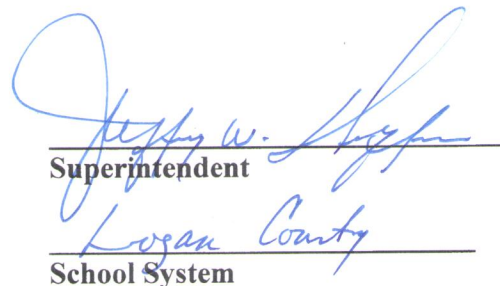 Jeffrey W.
Superintendent
Logan County
School System